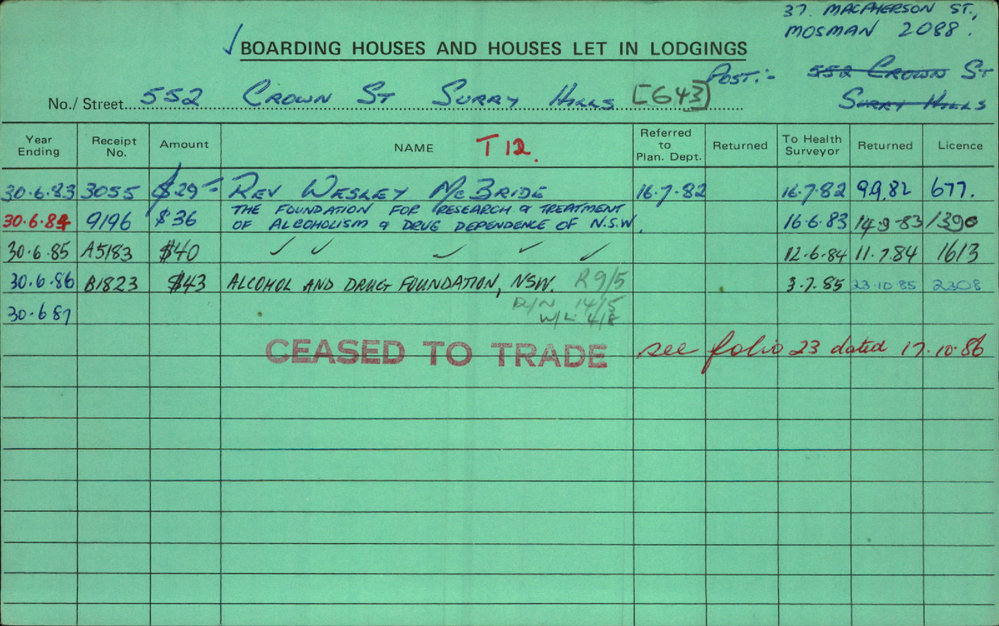 37. MACPHERSON ST.,
MOSMAN 2088.
✓ BOARDING HOUSES AND HOUSES LET IN LODGINGS
POST:- 552 CROWN ST
SURRY HILLS
No./Street 552 CROWN ST SURRY HILLS [643]
Year Ending Receipt No. Amount NAME T 12. Referred to Plan. Dept. Returned To Health Surveyor Returned Licence
30.6.83 3055 $29- REV WESLEY MCBRIDE 16.7.82 16.7.82 9.9.82 677.
30.6.84 9196 $36 THE FOUNDATION FOR RESEARCH & TREATMENT
OF ALCOHOLISM & DRUG DEPENDENCE OF N.S.W. 16.6.83 14.9.83 1390
30.6.85 A5183 $40 ✓ ✓ ✓ ✓ ✓ 12.6.84 11.7.84 1613
30.6.86 B1823 $43 ALCOHOL AND DRUG FOUNDATION, NSW. R9/5 3.7.85 23.10.85 2308
30.6.87 14/5
W/L 4/8
CEASED TO TRADE see folio 23 dated 17.10.86